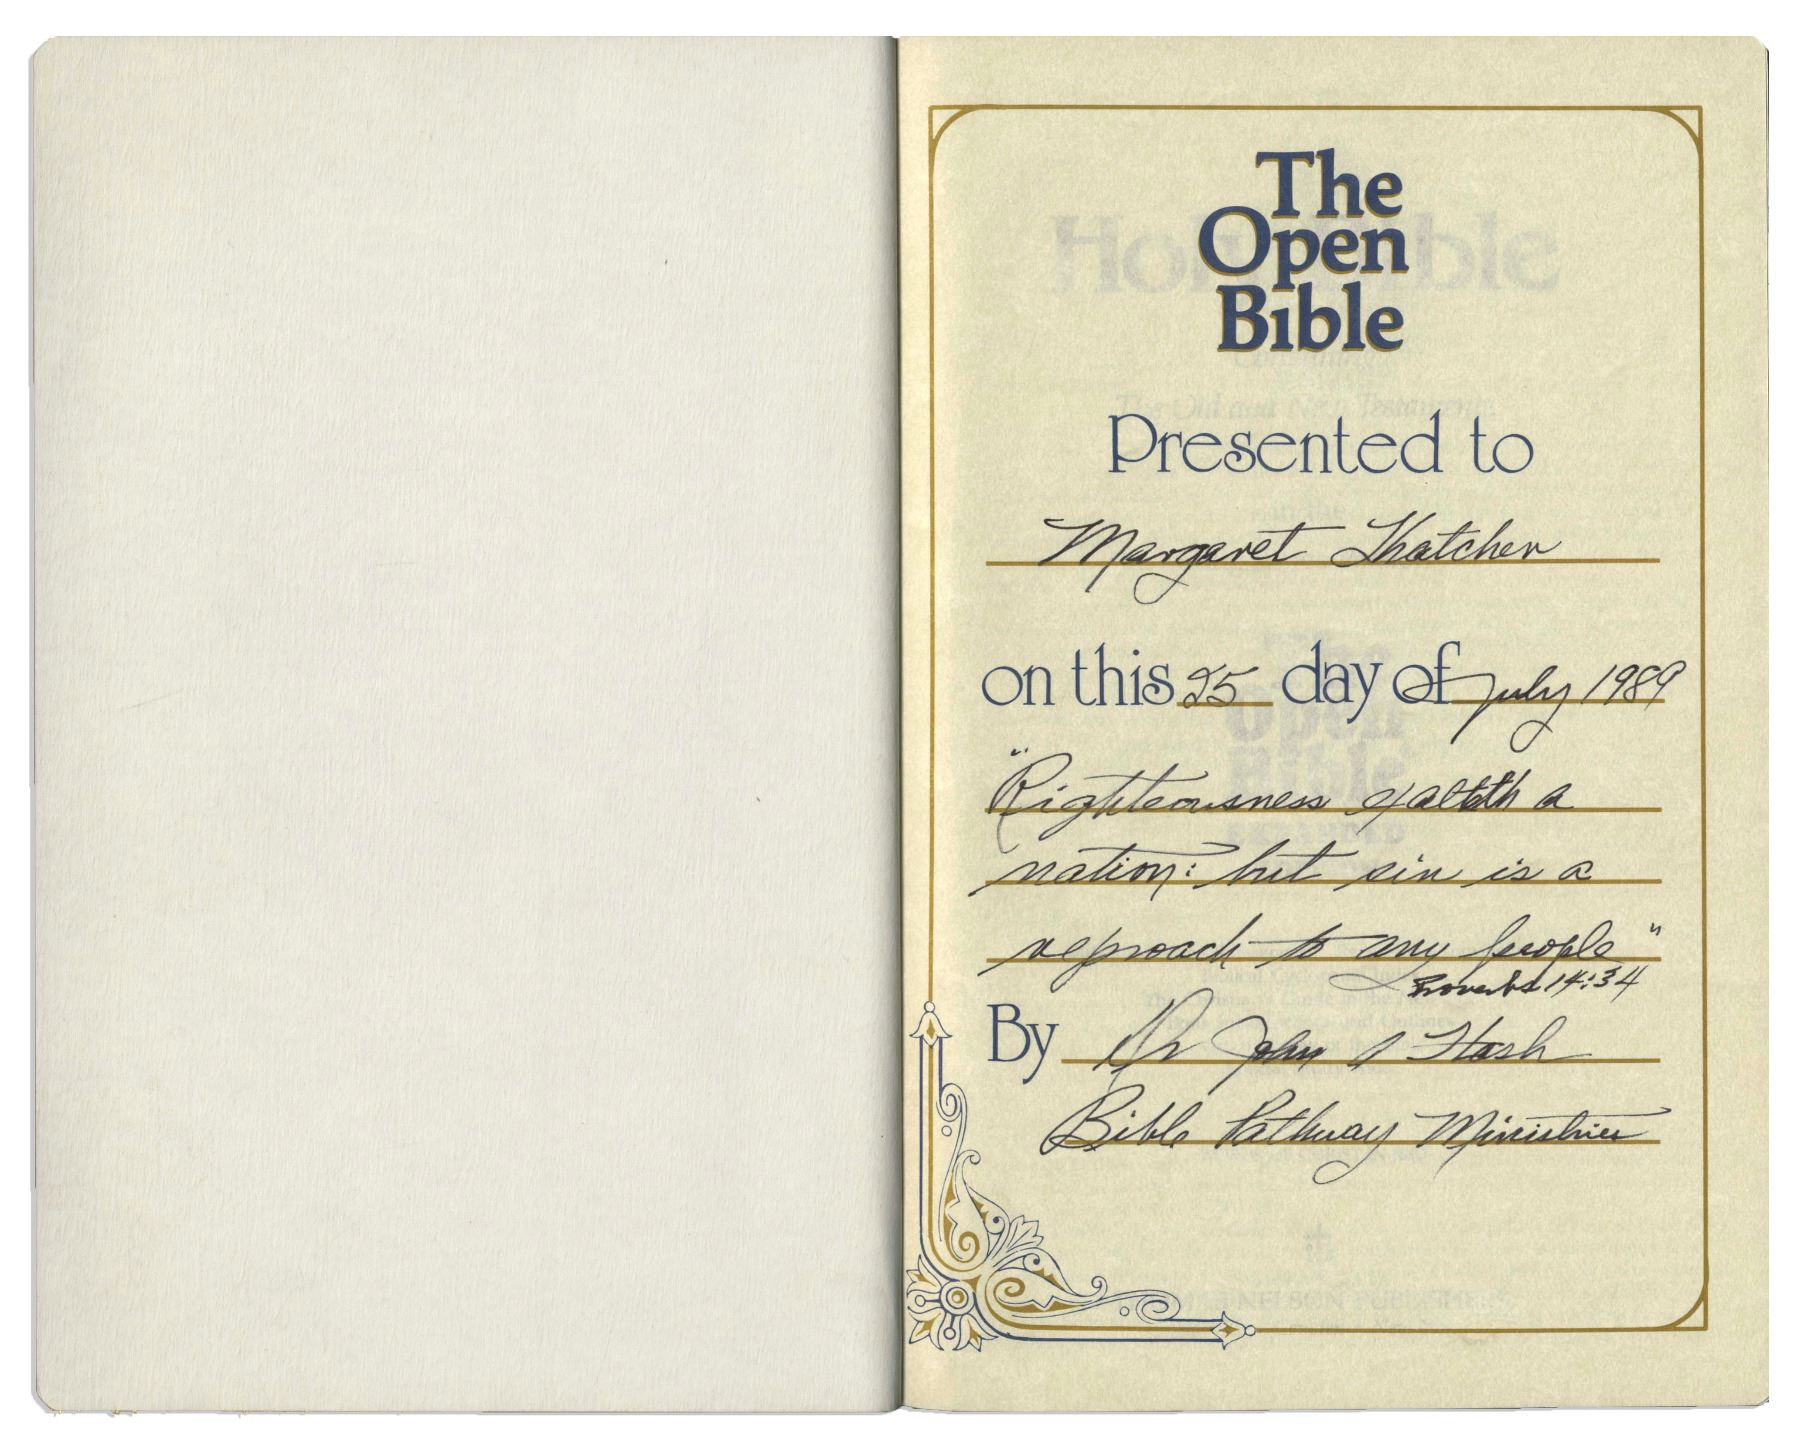 The
Open
Bible
Presented to
Margaret Thatcher
on this 25 day of July 1989
"Righteousness exalteth a
nation: but sin is a
reproach to any people"
Proverbs 14:34
By Dr John A Hash
Bible Pathway Ministries